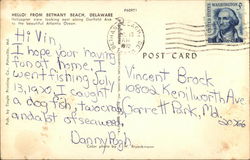 HELLO! FROM BETHANY BEACH, DELAWARE
Helicopter view looking east along Garfield Ave
to the beautiful Atlantic Ocean
POST CARD
WASHINGTON
Hi Vin,
I hope your having
fun at home. I
went fishing July
13, 1970. I caught
a dog fish, two crab
and a lot of seaweed.
Danny Pugh
Vincent Brock
10802 Kenilworth Ave
Garrett Park, Md.
Color photo by